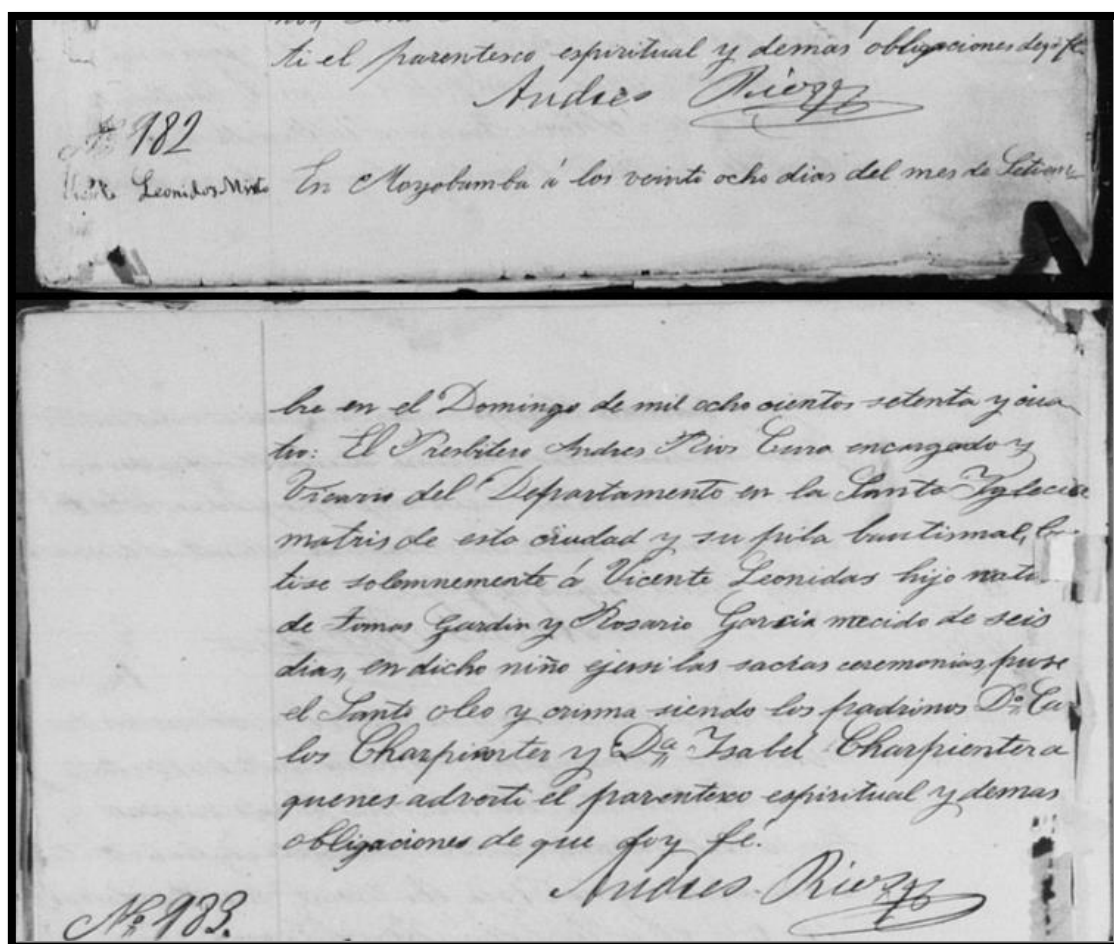 ti el parentesco espiritual y demas obligaciones deqe fe
Andres Rios
No 982
Leonidos Misto
En Moyobamba á los veinti ocho dias del mes de Setiem
bre en el Domingo de mil ocho cientos setenta y cua
tro: El Presbitero Andres Rios Cura encargado y
Vicario del Departamento en la Santa Yglecia
matris de esta ciudad y su pila bautismal, ba
tise solemnemente á Vicente Leonidas hijo natu
de Tomas Gardin y Rosario Garcia necido de seis
dias, en dicho niño ejersi las sacras ceremonias, puse
el Santo oleo y crisma siendo los padrinos Dn Ca
los Charpienter y Da Isabel Charpienter a
quenes adverti el parentesco espiritual y demas
obligaciones de que doy fé.
Andres Rios
No 983.